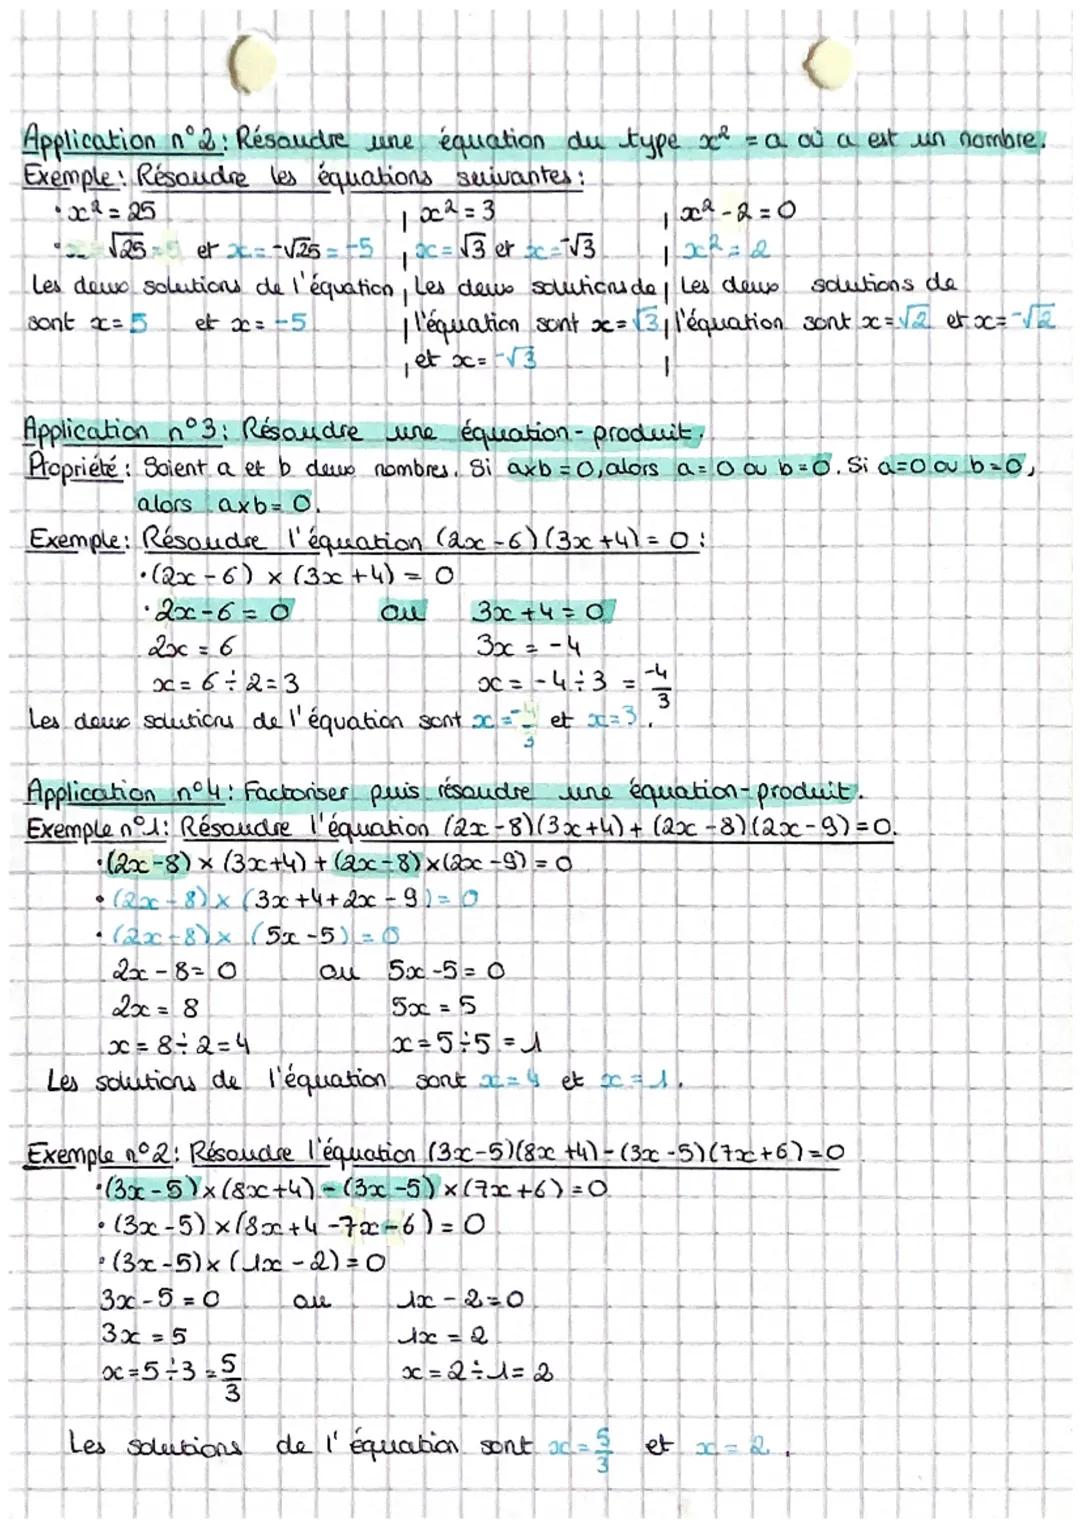 Application n°2: Résoudre une équation du type x² = a où a est un nombre.
Exemple: Résoudre les équations suivantes:
• x² = 25 | x² = 3 | x² - 2 = 0
• x = √25 = 5 et x = -√25 = -5 | x = √3 et x = -√3 | x² = 2
Les deux solutions de l'équation | Les deux solutions de | Les deux solutions de
sont x = 5 et x = -5 | l'équation sont x = √3 | l'équation sont x = √2 et x = -√2
| et x = -√3 |
Application n°3: Résoudre une équation-produit.
Propriété: Soient a et b deux nombres. Si axb = 0, alors a = 0 ou b = 0. Si a = 0 ou b = 0,
alors axb = 0.
Exemple: Résoudre l'équation (2x - 6)(3x + 4) = 0:
• (2x - 6) × (3x + 4) = 0
• 2x - 6 = 0 ou 3x + 4 = 0
2x = 6 3x = -4
x = 6 ÷ 2 = 3 x = -4 ÷ 3 = -4/3
Les deux solutions de l'équation sont x = -4/3 et x = 3.
Application n°4: Factoriser puis résoudre une équation-produit.
Exemple n°1: Résoudre l'équation (2x - 8)(3x + 4) + (2x - 8)(2x - 9) = 0.
• (2x - 8) × (3x + 4) + (2x - 8) × (2x - 9) = 0
• (2x - 8) × (3x + 4 + 2x - 9) = 0
• (2x - 8) × (5x - 5) = 0
2x - 8 = 0 ou 5x - 5 = 0
2x = 8 5x = 5
x = 8 ÷ 2 = 4 x = 5 ÷ 5 = 1
Les solutions de l'équation sont x = 4 et x = 1.
Exemple n°2: Résoudre l'équation (3x - 5)(8x + 4) - (3x - 5)(7x + 6) = 0
• (3x - 5) × (8x + 4) - (3x - 5) × (7x + 6) = 0
• (3x - 5) × (8x + 4 - 7x - 6) = 0
• (3x - 5) × (1x - 2) = 0
3x - 5 = 0 ou 1x - 2 = 0
3x = 5 1x = 2
x = 5 ÷ 3 = 5/3 x = 2 ÷ 1 = 2
Les solutions de l'équation sont x = 5/3 et x = 2.